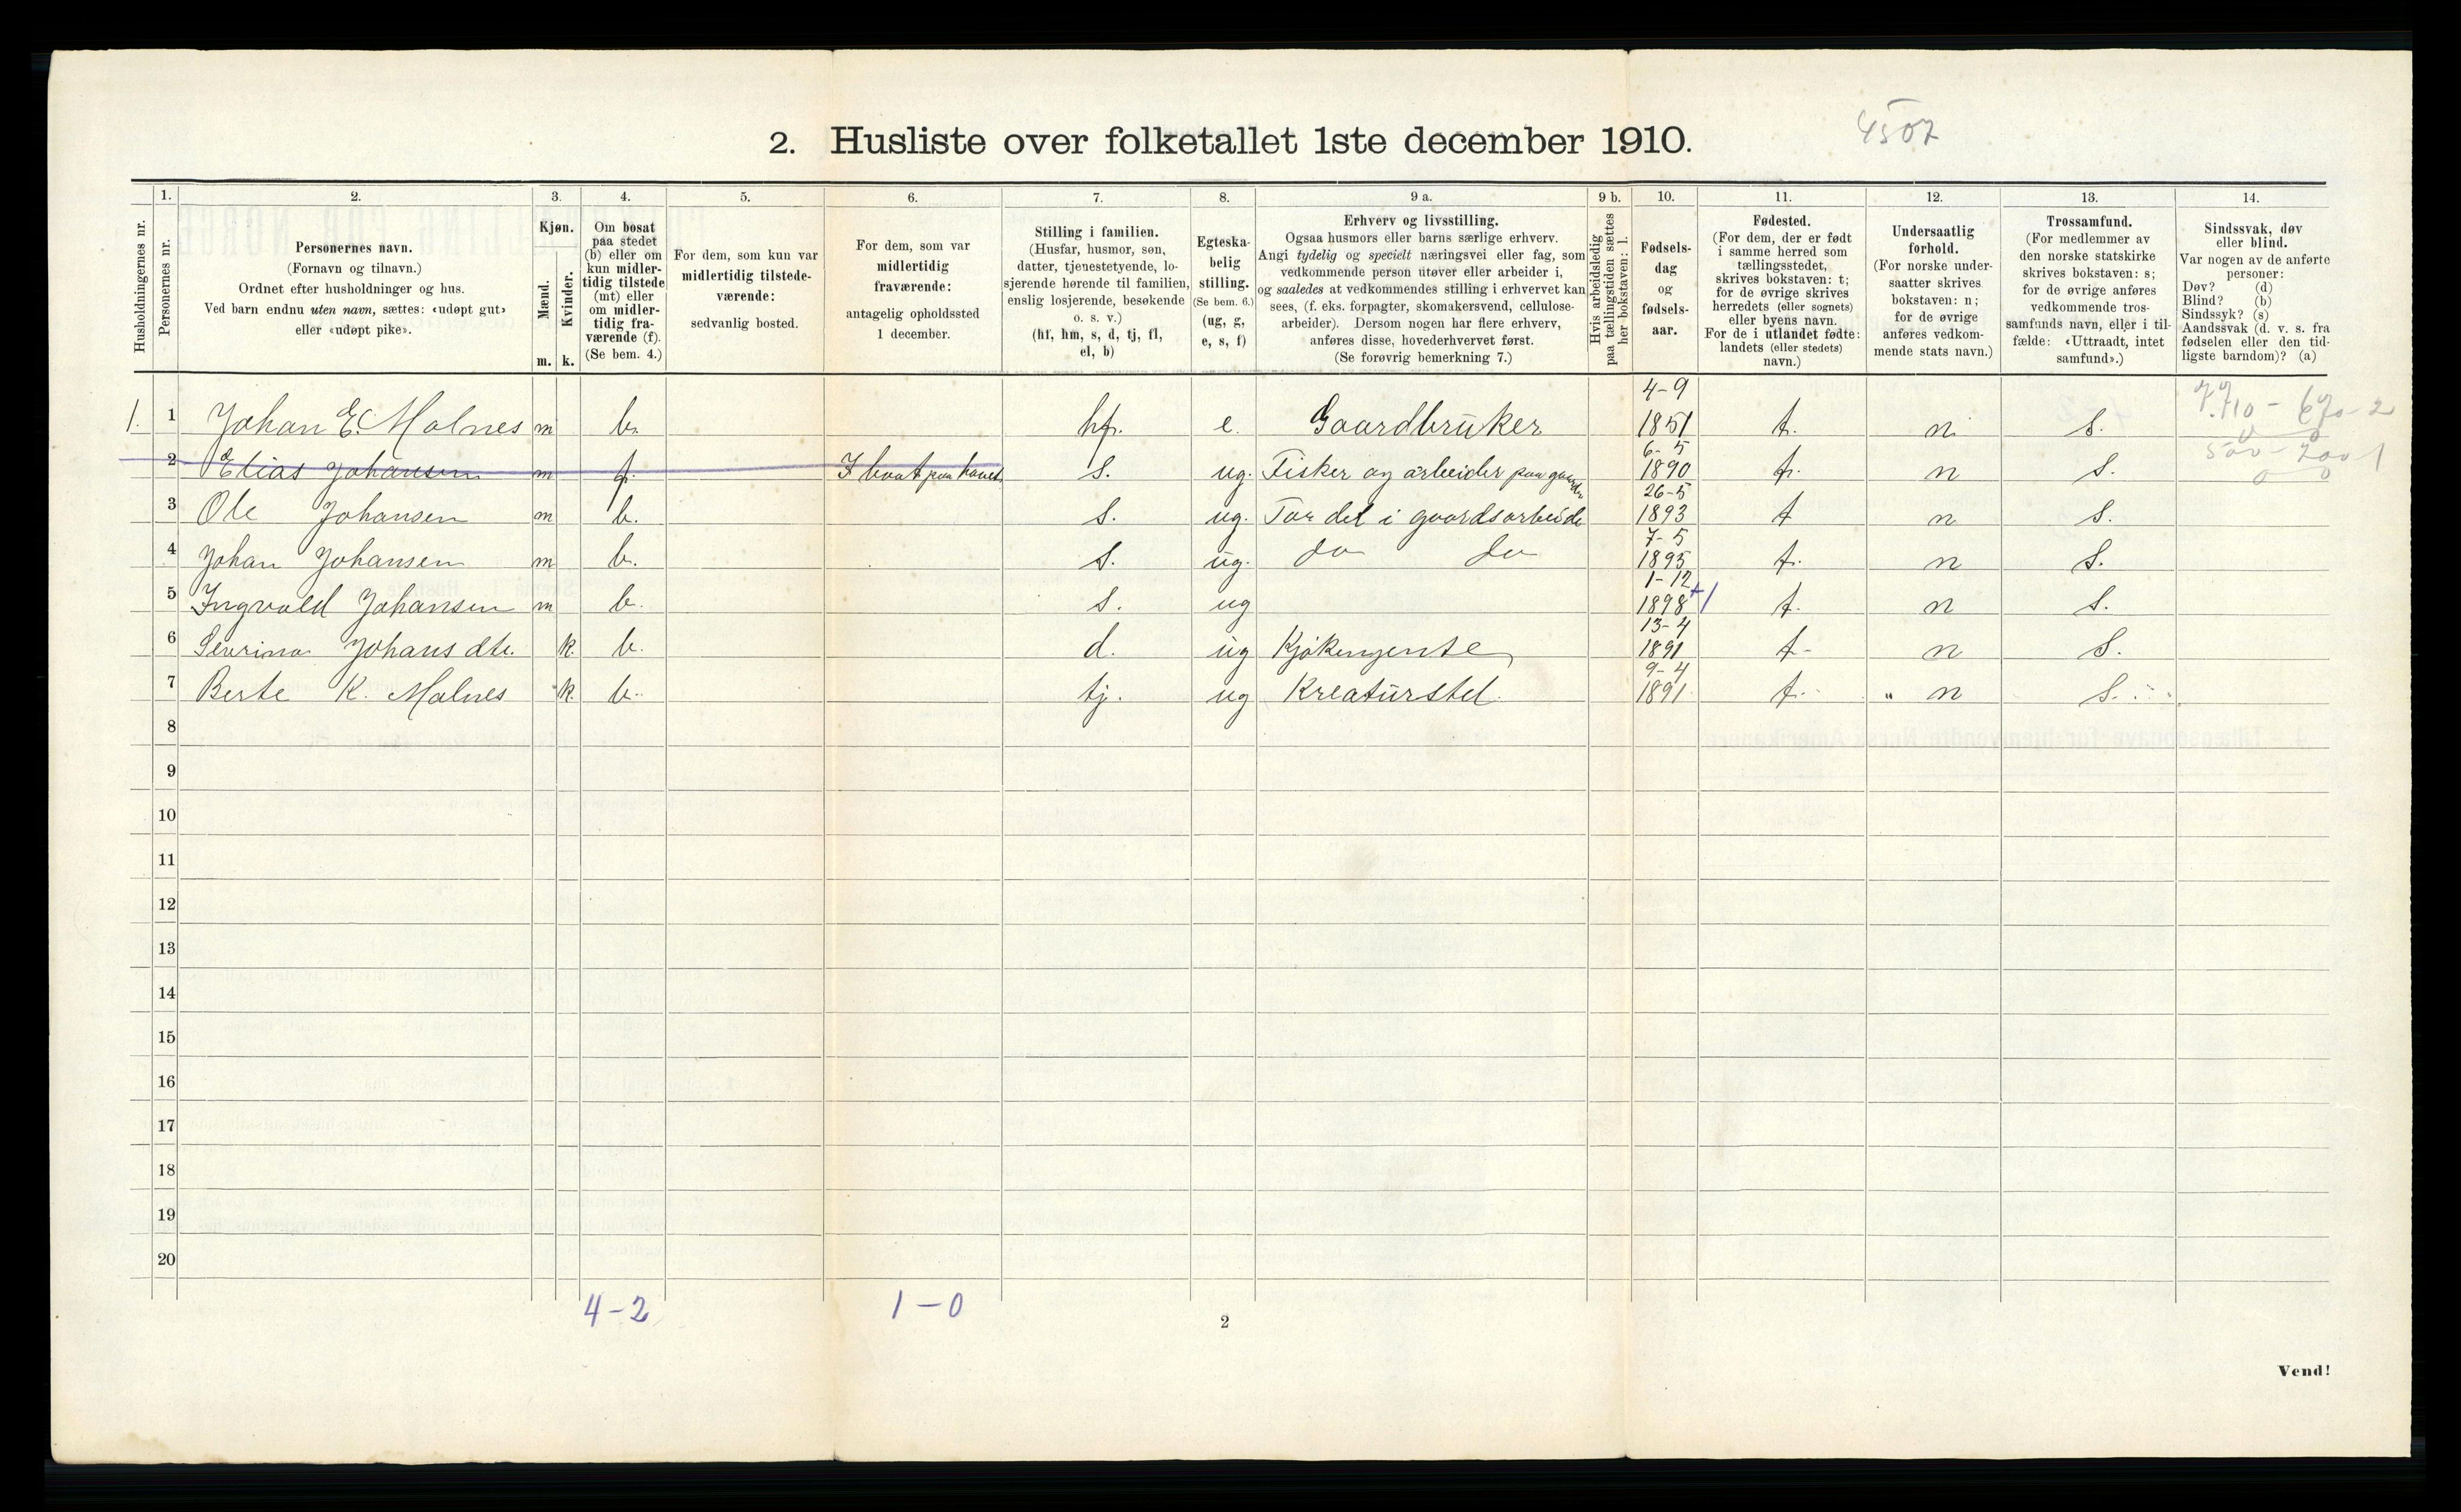 2. Husliste over folketallet 1ste december 1910.
4507
1.
2.
3.
4.
5.
6.
7.
8.
9 a.
9 b.
10.
11.
12.
13.
14.
Husholdningernes nr.
Personernes nr.
Personernes navn.
(Fornavn og tilnavn.)
Ordnet efter husholdninger og hus.
Ved barn endnu uten navn, sættes: «udøpt gut»
eller «udøpt pike».
Kjøn.
Mænd.
m.
Kvinder.
k.
Om bosat
paa stedet
(b) eller om
kun midler-
tidig tilstede
(mt) eller
om midler-
tidig fra-
værende (f).
(Se bem. 4.)
For dem, som kun var
midlertidig tilstede-
værende:
sedvanlig bosted.
For dem, som var
midlertidig
fraværende:
antagelig opholdssted
1 december.
Stilling i familien.
(Husfar, husmor, søn,
datter, tjenestetyende, lo-
sjerende hørende til familien,
enslig losjerende, besøkende
o. s. v.)
(hf, hm, s, d, tj, fl,
el, b)
Egteska-
belig
stilling.
(Se bem. 6.)
(ug, g,
e, s, f)
Erhverv og livsstilling.
Ogsaa husmors eller barns særlige erhverv.
Angi tydelig og specielt næringsvei eller fag, som
vedkommende person utøver eller arbeider i,
og saaledes at vedkommendes stilling i erhvervet kan
sees, (f. eks. forpagter, skomakersvend, cellulose-
arbeider). Dersom nogen har flere erhverv,
anføres disse, hovederhvervet først.
(Se forøvrig bemerkning 7.)
Hvis arbeidsledig
paa tællingstiden sættes
her bokstaven: l.
Fødsels-
dag
og
fødsels-
aar.
Fødested.
(For dem, der er født
i samme herred som
tællingsstedet,
skrives bokstaven: t;
for de øvrige skrives
herredets (eller sognets)
eller byens navn.
For de i utlandet fødte:
landets (eller stedets)
navn.)
Undersaatlig
forhold.
(For norske under-
saatter skrives
bokstaven: n;
for de øvrige
anføres vedkom-
mende stats navn.)
Trossamfund.
(For medlemmer av
den norske statskirke
skrives bokstaven: s;
for de øvrige anføres
vedkommende tros-
samfunds navn, eller i til-
fælde: «Uttraadt, intet
samfund».)
Sindssvak, døv
eller blind.
Var nogen av de anførte
personer:
Døv? (d)
Blind? (b)
Sindssyk? (s)
Aandssvak (d. v. s. fra
fødselen eller den tid-
ligste barndom)? (a)
1. 1 Johan E. Molnes m b. hf. e. Gaardbruker 4-9 1851 t. n. s.
2 Elias Johansen m f. I baat paa havet s. ug. Fisker og arbeider paa gaarden 6-5 1890 t. n s.
3 Ole Johansen m b. s. ug. Tar del i gaardsarbeide 26-5 1893 t n s.
4 Johan Johansen m b. s. ug. do do 7-5 1895 t. n s.
5 Ingvald Johansen m b. s. ug 1-12 1898 +1 t. n s.
6 Severina Johansdtr. k. b. d. ug Kjøkengente 13-4 1891 t- n s.
7 Berte K. Molnes k. b. tj. ug Kreaturstel 9-4 1891 t. " n s.
8
9
10
11
12
13
14
15
16
17
18
19
20
4-2 1-0
2
Vend!